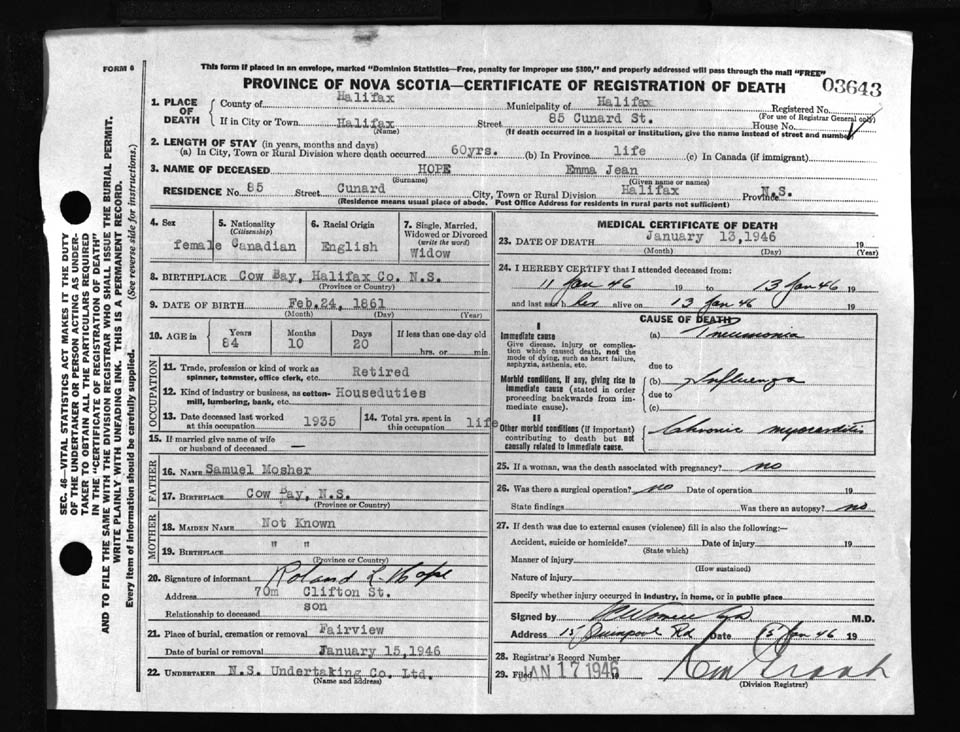 FORM 6
This form if placed in an envelope, marked "Dominion Statistics—Free, penalty for improper use $300," and properly addressed will pass through the mail "FREE"
PROVINCE OF NOVA SCOTIA—CERTIFICATE OF REGISTRATION OF DEATH
03643
1. PLACE OF DEATH
County of Halifax Municipality of Halifax Registered No.
(For use of Registrar General only)
If in City or Town Halifax Street 85 Cunard St. House No.
(Name) (If death occurred in a hospital or institution, give the name instead of street and number)
2. LENGTH OF STAY (in years, months and days)
(a) In City, Town or Rural Division where death occurred 60yrs. (b) In Province life (c) In Canada (if immigrant)
3. NAME OF DECEASED HOPE Emma Jean
(Surname) (Given name or names)
RESIDENCE No. 85 Street Cunard City, Town or Rural Division Halifax Province N.S.
(Residence means usual place of abode. Post Office Address for residents in rural parts not sufficient)
4. Sex
female
5. Nationality
(Citizenship)
Canadian
6. Racial Origin
English
7. Single, Married, Widowed or Divorced
(write the word)
Widow
8. BIRTHPLACE Cow Bay, Halifax Co. N.S.
(Province or Country)
9. DATE OF BIRTH Feb.24, 1861
(Month) (Day) (Year)
10. AGE in
Years Months Days If less than one day old
84 10 20 hrs. or min.
OCCUPATION
11. Trade, profession or kind of work as Retired
spinner, teamster, office clerk, etc.
12. Kind of industry or business, as cotton- Houseduties
mill, lumbering, bank, etc.
13. Date deceased last worked at this occupation 1935
14. Total yrs. spent in this occupation life
15. If married give name of wife or husband of deceased —
FATHER
16. NAME Samuel Mosher
17. BIRTHPLACE Cow Bay, N.S.
(Province or Country)
MOTHER
18. MAIDEN NAME Not Known
19. BIRTHPLACE " "
(Province or Country)
20. Signature of informant Roland L. Hope
Address 70m Clifton St.
Relationship to deceased son
21. Place of burial, cremation or removal Fairview
Date of burial or removal January 15,1946
22. UNDERTAKER N.S. Undertaking Co. Ltd.
(Name and address)
MEDICAL CERTIFICATE OF DEATH
23. DATE OF DEATH January 13,1946 19
(Month) (Day) (Year)
24. I HEREBY CERTIFY that I attended deceased from:
11 Jan 46 19 to 13 Jan 46 19
and last saw h her alive on 13 Jan 46 19
CAUSE OF DEATH
I
Immediate cause
Give disease, injury or complication which caused death, not the mode of dying, such as heart failure, asphyxia, asthenia, etc.
(a) Pneumonia
due to
Morbid conditions, if any, giving rise to immediate cause (stated in order proceeding backwards from immediate cause).
(b) Influenza
due to
(c)
II
Other morbid conditions (if important) contributing to death but not causally related to immediate cause.
Chronic myocarditis
25. If a woman, was the death associated with pregnancy? no
26. Was there a surgical operation? no Date of operation 19
State findings Was there an autopsy? no
27. If death was due to external causes (violence) fill in also the following:—
Accident, suicide or homicide? Date of injury 19
(State which)
Manner of injury
(How sustained)
Nature of injury
Specify whether injury occurred in industry, in home, or in public place
Signed by M.D.
Address 15 Quinpool Rd Date 15 Jan 46 19
28. Registrar's Record Number
29. Filed JAN 17 1946 19
(Division Registrar)
SEC. 46—VITAL STATISTICS ACT MAKES IT THE DUTY
OF THE UNDERTAKER OR PERSON ACTING AS UNDER-
TAKER TO OBTAIN ALL THE PARTICULARS REQUIRED
IN THE "CERTIFICATE OF REGISTRATION OF DEATH"
AND TO FILE THE SAME WITH THE DIVISION REGISTRAR WHO SHALL ISSUE THE BURIAL PERMIT.
WRITE PLAINLY WITH UNFADING INK. THIS IS A PERMANENT RECORD.
Every item of information should be carefully supplied. (See reverse side for instructions.)